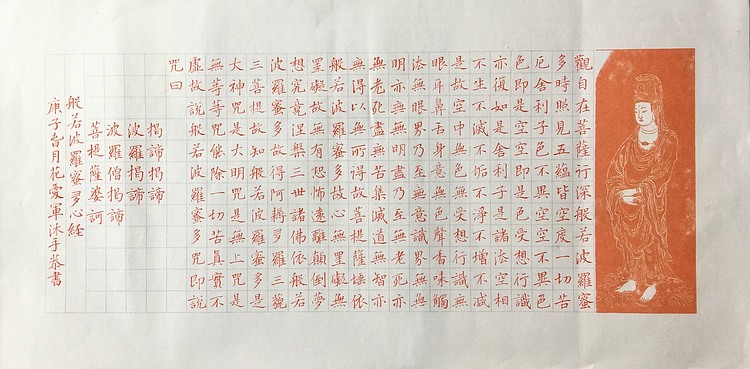 觀自在菩薩行深般若波羅蜜
多時照見五蘊皆空度一切苦
厄舍利子色不異空空不異色
色即是空空即是色受想行識
亦復如是舍利子是諸法空相
不生不滅不垢不淨不增不減
是故空中無色無受想行識無
眼耳鼻舌身意無色聲香味觸
法無眼界乃至無意識界無無
明亦無無明盡乃至無老死亦
無老死盡無苦集滅道無智亦
無得以無所得故菩提薩埵依
般若波羅蜜多故心無罣礙無
罣礙故無有恐怖遠離顛倒夢
想究竟涅槃三世諸佛依般若
波羅蜜多故得阿耨多羅三藐
三菩提故知般若波羅蜜多是
大神咒是大明咒是無上咒是
無等等咒能除一切苦真實不
虛故說般若波羅蜜多咒即說
咒曰
揭諦揭諦
波羅揭諦
波羅僧揭諦
菩提薩婆訶
般若波羅蜜多心經
庚子杏月花愛軍沐手恭書